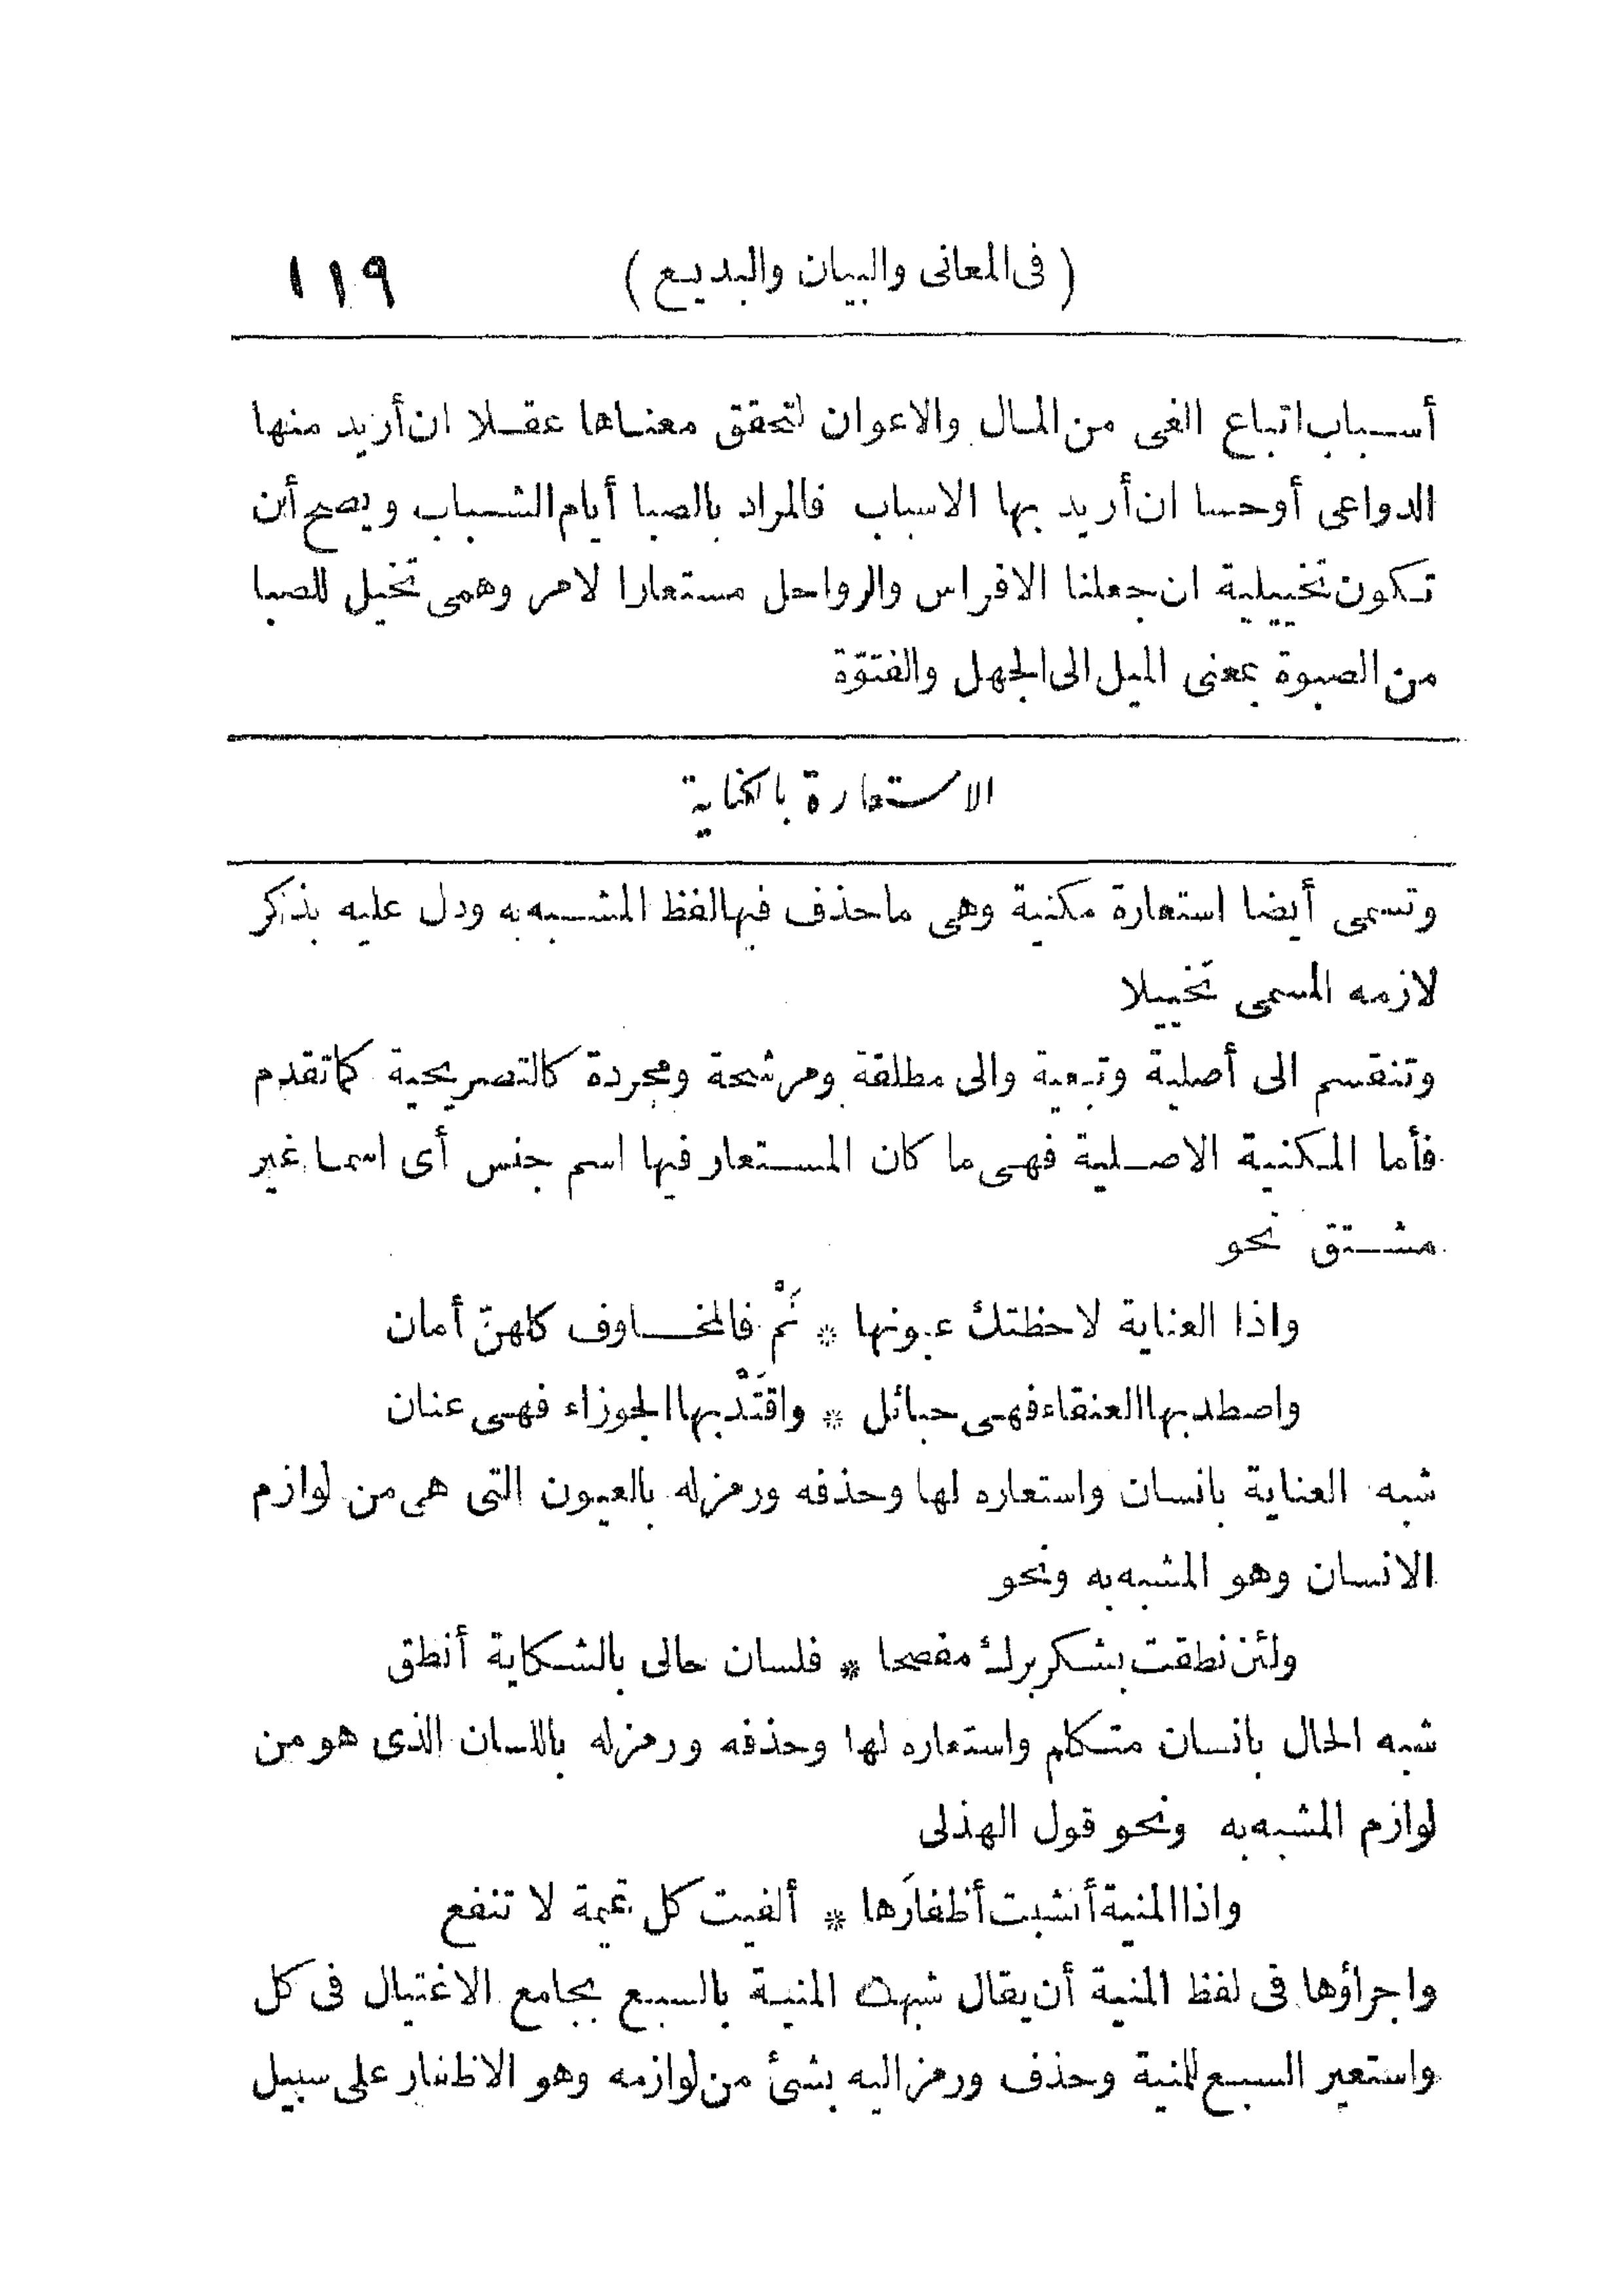 ( فى المعانى والبيان والبديع ) ١١٩
أسباب اتباع الغى من المال والاعوان لتحقق معناها عقلا ان أريد منها
الدواعى أوحسا ان أريد بها الاسباب فالمراد بالصبا أيام الشباب ويصح أن
تكون تخييلية ان جعلنا الافراس والرواحل مستعارا لامر وهمى تخيل للصبا
من الصبوة بمعنى الميل الى الجهل والفتوّة
الاستعارة بالكناية
وتسمى أيضا استعارة مكنية وهى ماحذف فيها لفظ المشبه به ودل عليه بذكر
لازمه المسمى تخييلا
وتنقسم الى أصلية وتبعية والى مطلقة ومرشحة ومجردة كالتصريحية كما تقدم
فأما المكنية الاصلية فهى ما كان المستعار فيها اسم جنس أى اسما غير
مشتق نحو
واذا العناية لاحظتك عيونها * نَمْ فالمخاوف كلهنّ أمان
واصطد بها العنقاء فهى حبائل * واقتَدْ بها الجوزاء فهى عنان
شبه العناية بانسان واستعاره لها وحذفه ورمز له بالعيون التى هى من لوازم
الانسان وهو المشبه به ونحو
ولئن نطقت بشكر برك مفصحا * فلسان حالى بالشكاية أنطق
شبه الحال بانسان متكلم واستعاره لها وحذفه ورمز له باللسان الذى هو من
لوازم المشبه به ونحو قول الهذلى
واذا المنية أنشبت أظفارَها * ألفيت كل تميمة لا تنفع
واجراؤها فى لفظ المنية أن يقال شبهت المنية بالسبع بجامع الاغتيال فى كل
واستعير السبع للمنية وحذف ورمز اليه بشئ من لوازمه وهو الاظفار على سبيل